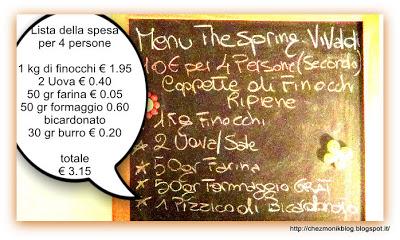 Lista della spesa
per 4 persone
1 kg di finocchi € 1.95
2 Uova € 0.40
50 gr farina € 0.05
50 gr formaggio 0.60
bicardonato
30 gr burro € 0.20
totale
€ 3.15
Menu The Spring ViValdi
10€ per 4 Persone (Secondo)
Coppette di Finocchi
Ripiene
1kg Finocchi
* 2 Uova/Sale
* 50gr Farina
* 50gr Formaggio GRAT
* 1 Pizzico di Bicarbonato
http://chezmonikblog.blogspot.it/